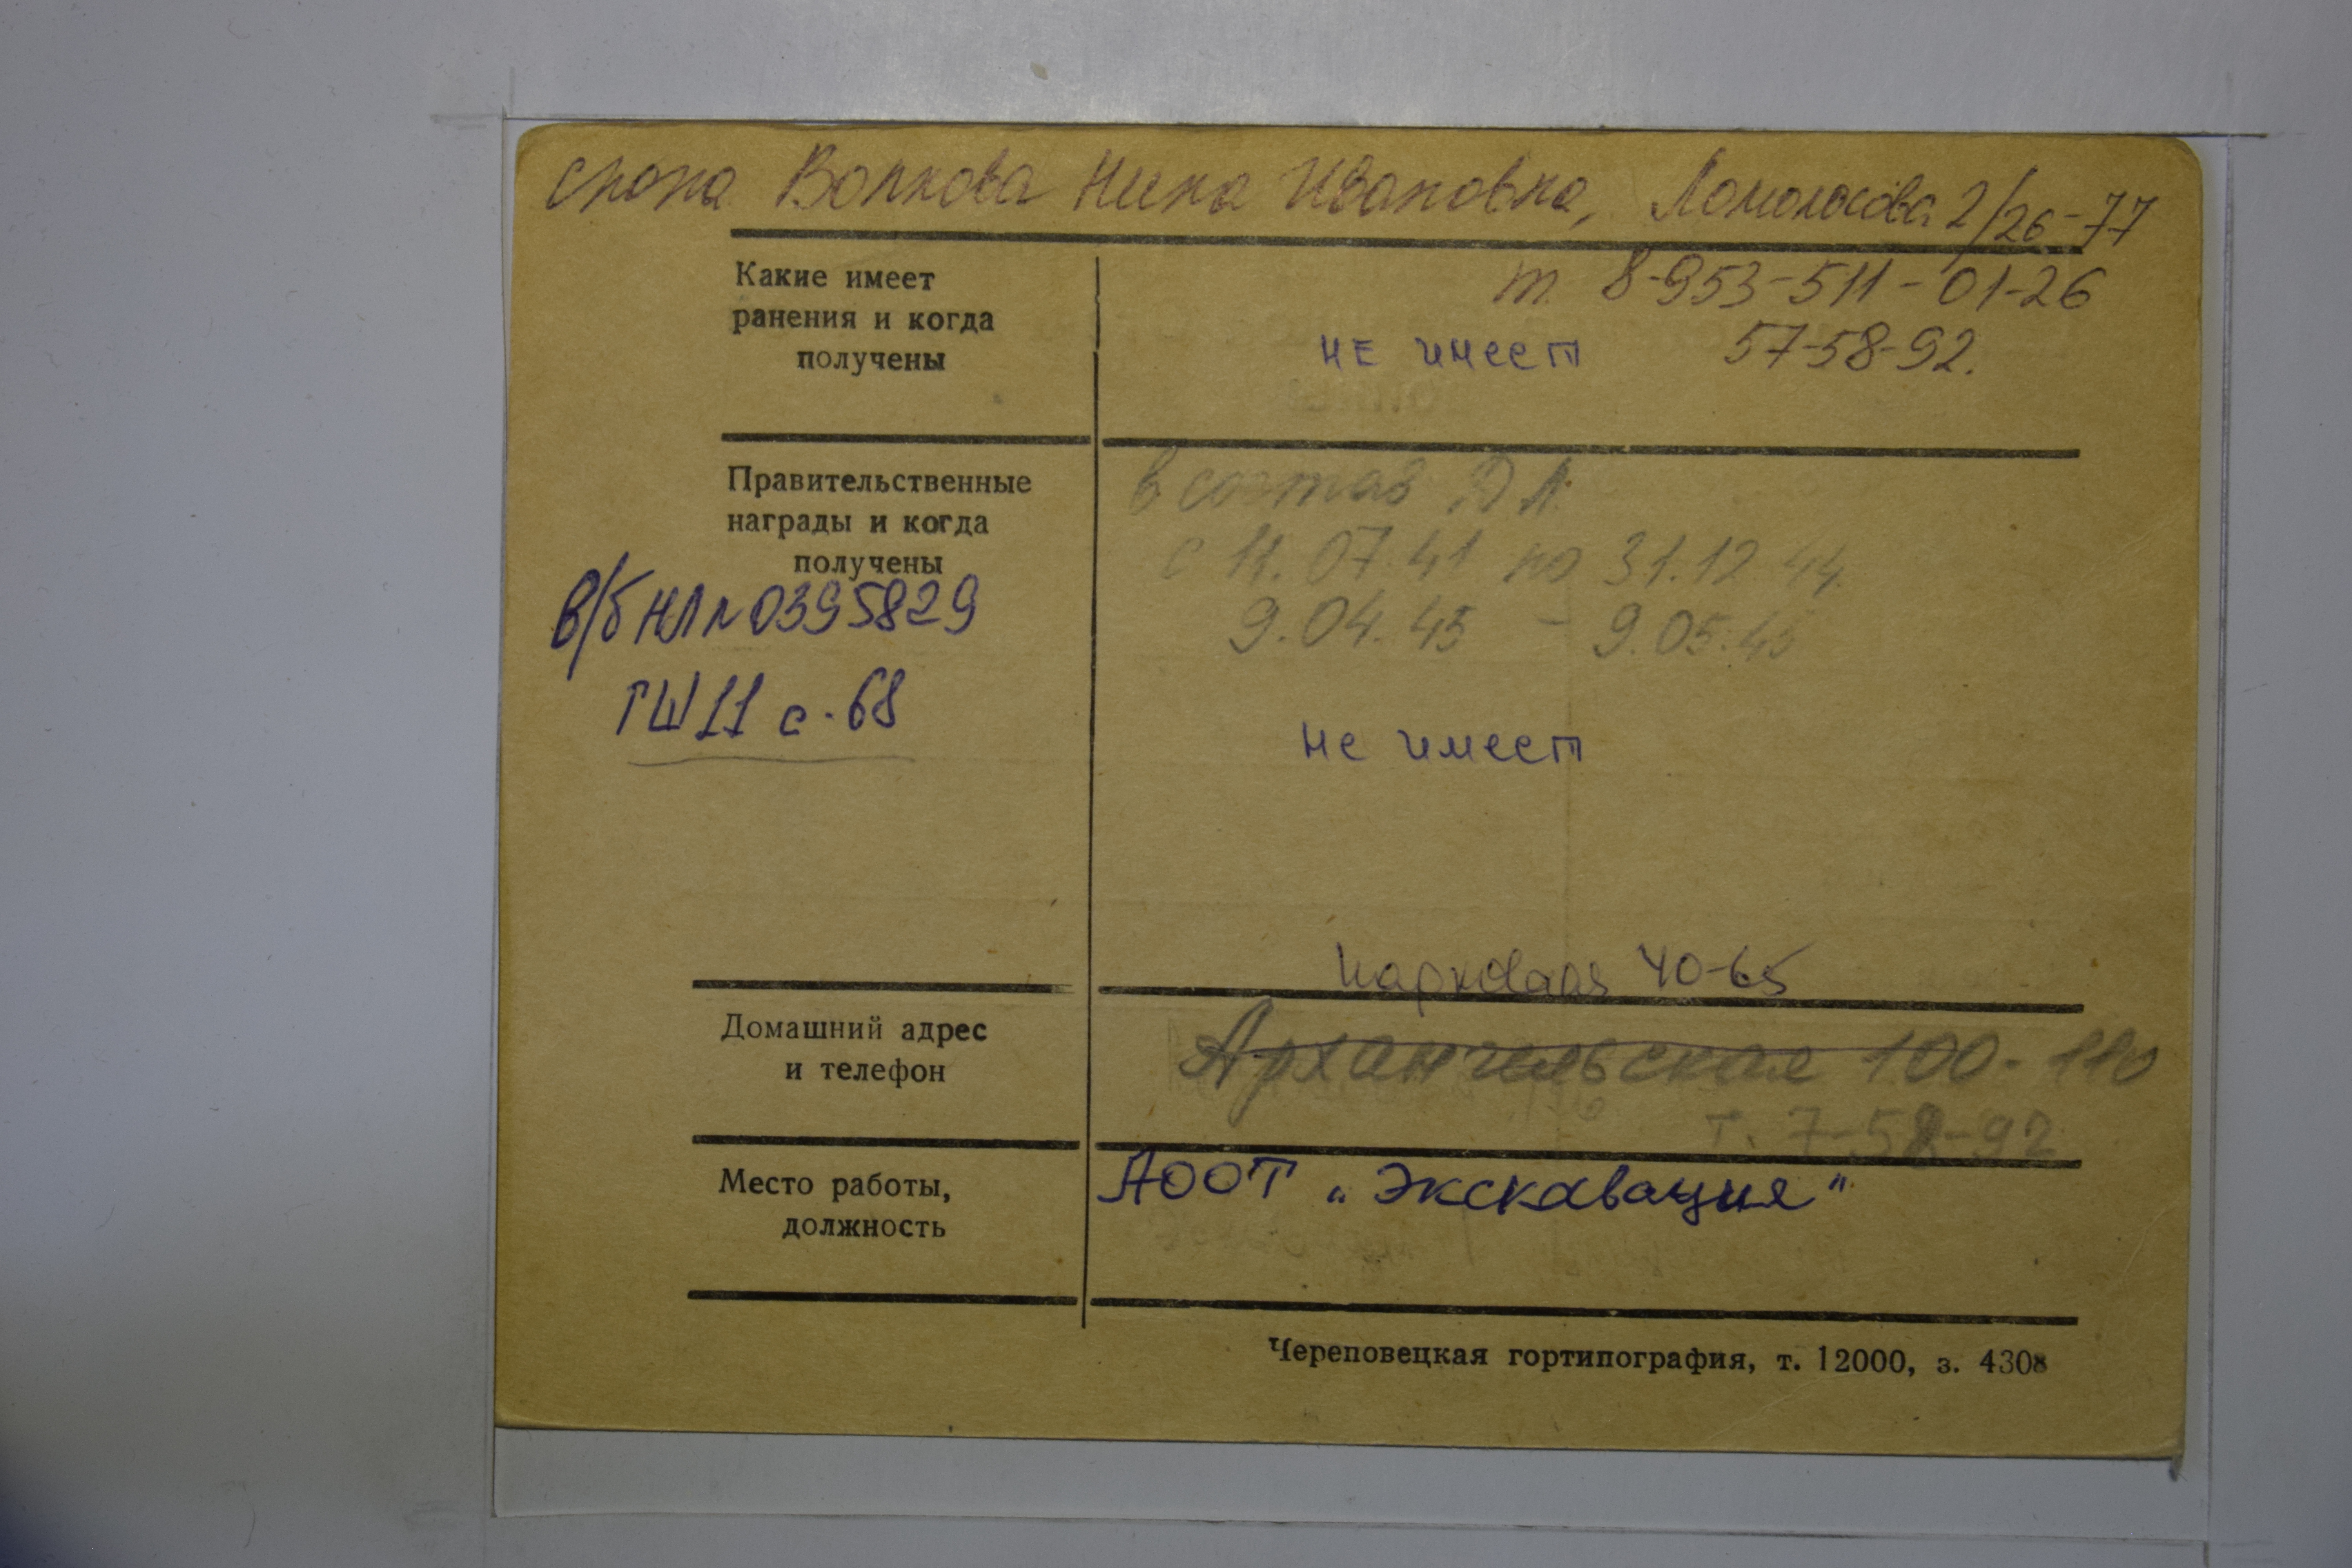 сноха Волкова Нина Ивановна, Ломоносова 2/26-77
Какие имеет
ранения и когда
получены
т. 8-953-511-01-26
57-58-92.
не имеет
Правительственные
награды и когда
получены
в состав Д А.
с 11.07.41 по 31.12.44.
9.04.45 - 9.05.45
в/б НЛ № 0395829
ГШ 11 с. 68
не имеет
Парковая 40-65
Домашний адрес
и телефон
Архангельская 100-110
т. 7-58-92
Место работы,
должность
АООТ „Экскавация"
Череповецкая гортипография, т. 12000, з. 4308